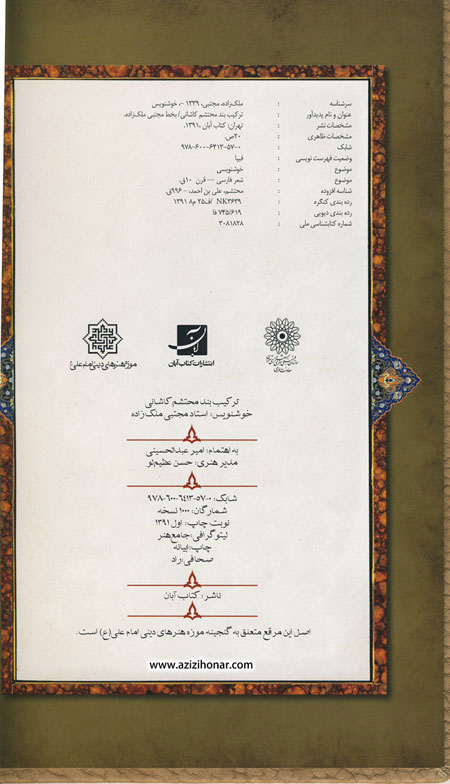 سرشناسه : ملک‌زاده، مجتبی، ۱۳۳۹ -، خوشنویس
عنوان و نام پدیدآور : ترکیب بند محتشم کاشانی/ بخط مجتبی ملک‌زاده.
مشخصات نشر : تهران: کتاب آبان، ۱۳۹۱.
مشخصات ظاهری : ۲۰ص.
شابک : ۹۷۸-۶۰۰-۶۴۱۳-۵۷-۰
وضعیت فهرست نویسی : فیپا
موضوع : خوشنویسی
موضوع : شعر فارسی -- قرن ۱۰ق.
شناسه افزوده : محتشم، علی بن احمد، - ۹۹۶ق.
رده بندی کنگره : NK۳۶۳۹ /ف۲۵ م۸ ۱۳۹۱
رده بندی دیویی : ۷۴۵/۶۱۹ فا
شماره کتابشناسی ملی : ۳۰۸۱۸۲۸
انتشارات کتاب آبان
موزه هنرهای دینی امام علی
ترکیب بند محتشم کاشانی
خوشنویس: استاد مجتبی ملک زاده
به اهتمام: امیر عبدالحسینی
مدیر هنری: حسن عظیم‌لو
شابک: ۹۷۸-۶۰۰-۶۴۱۳-۵۷-۰
شمارگان: ۱۰۰۰ نسخه
نوبت چاپ: اول ۱۳۹۱
لیتوگرافی: جامع هنر
چاپ: ابیانه
صحافی: راد
ناشر: کتاب آبان
اصل این مرقع متعلق به گنجینه موزه هنرهای دینی امام علی(ع) است.
www.azizihonar.com